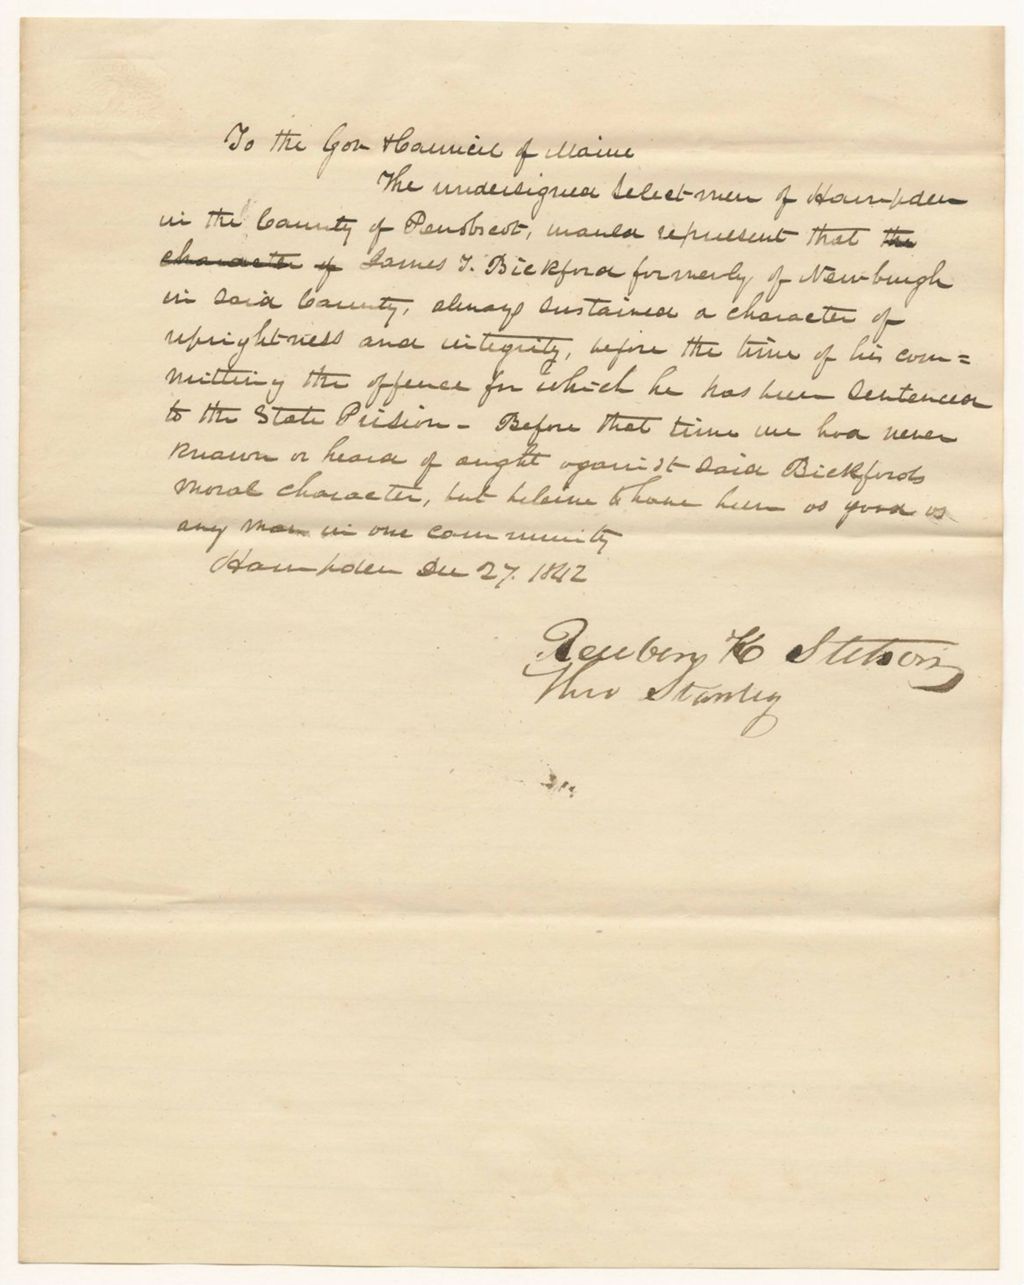 To the Gov & Council of Maine
The undersigned Selectmen of Hampden
in the County of Penobscot, would represent that the
character of James T. Bickford formerly of Newburgh
in said County, always sustained a character of
uprightness and integrity, before the time of his com=
mitting the offence for which he has been sentenced
to the State Prision - Before that time we had never
known or heard of aught against said Bickfords
moral character, but beleive to have been as good as
any man in our community
Hampden Dec 27. 1842
Reuben K Stetson
Theo Stanley